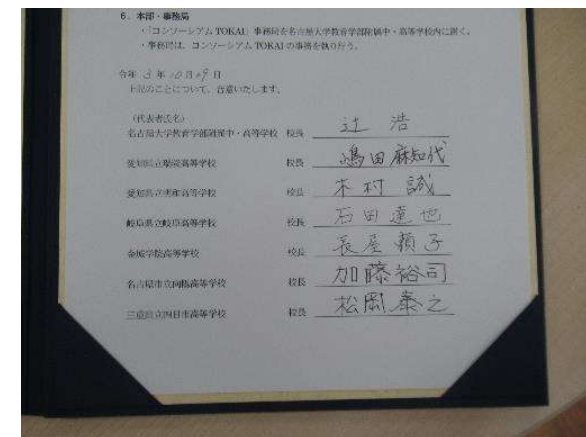 6. 本部・事務局
・「コンソーシアム TOKAI」事務局を名古屋大学教育学部附属中・高等学校内に置く。
・事務局は、コンソーシアム TOKAI の事務を執り行う。
令和 3 年 10 月 29 日
上記のことについて、合意いたします。
(代表者氏名)
名古屋大学教育学部附属中・高等学校 校長 辻 浩
愛知県立瑞陵高等学校 校長 嶋田麻知代
愛知県立明和高等学校 校長 木村 誠
岐阜県立岐阜高等学校 校長 石田達也
金城学院高等学校 校長 長屋頼子
名古屋市立向陽高等学校 校長 加藤裕司
三重県立四日市高等学校 校長 松岡泰之